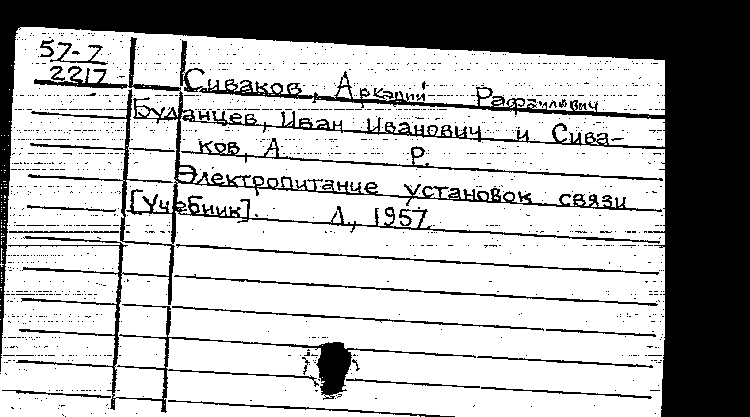 57-7
2217
Сиваков, Аркадий Рафаилович
Буланцев, Иван Иванович и Сива-
ков, А. Р.
Электропитание установок связи
[Учебник]. Л, 1957.